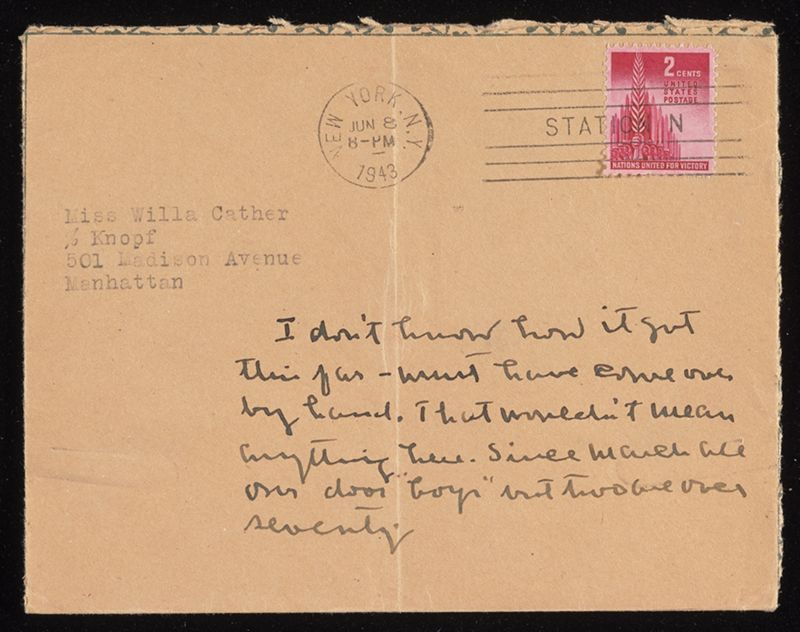 NEW YORK, N.Y.
JUN 8
8-PM
1943
STATION N
2 CENTS
UNITED
STATES
POSTAGE
NATIONS UNITED FOR VICTORY
Miss Willa Cather
℅ Knopf
501 Madison Avenue
Manhattan
I don't know how it got
this far - must have come over
by hand. That wouldn't mean
anything here. Since March all
our door "boys" but two are over
seventy